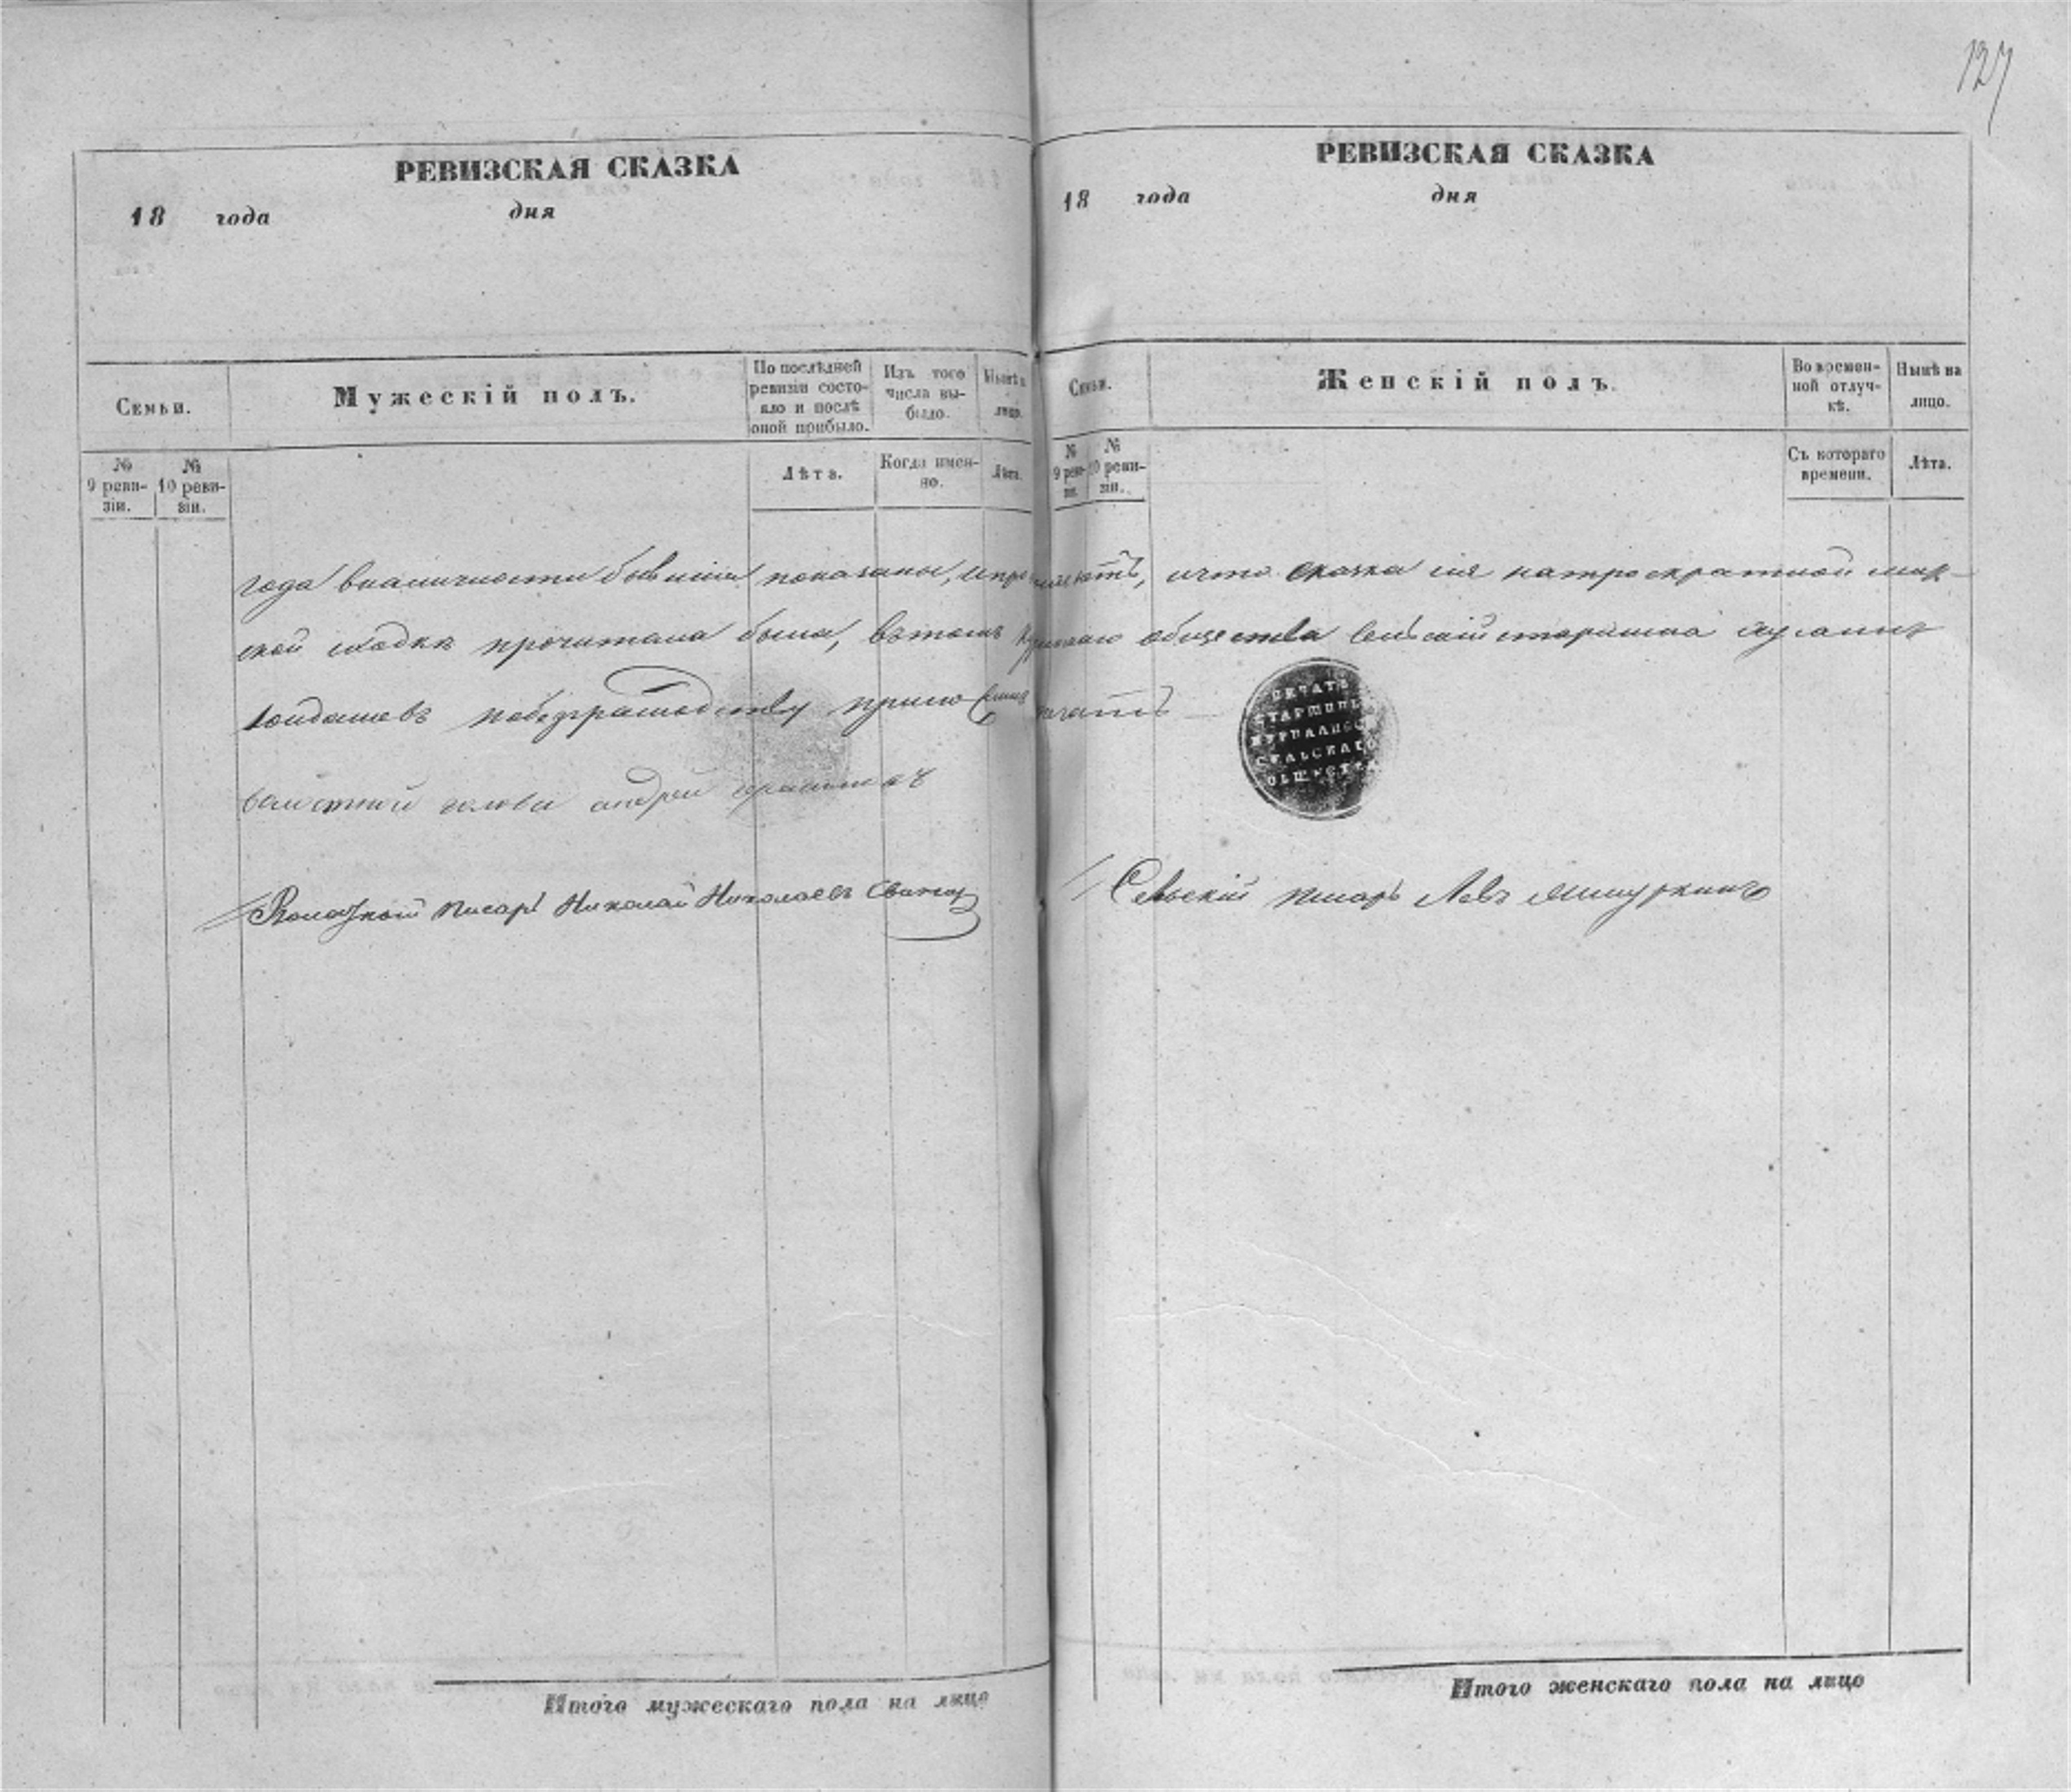 127
РЕВИЗСКАЯ СКАЗКА
18 года дня
Семьи.
Мужескій полъ.
По послѣдней ревизіи состояло и послѣ оной прибыло.
Изъ того числа выбыло.
Нынѣ на лицо.
№ 9 ревизіи.
№ 10 ревизіи.
Лѣта.
Когда именно.
Лѣта.
РЕВИЗСКАЯ СКАЗКА
18 года дня
Семьи.
Женскій полъ.
Во временной отлучкѣ.
Нынѣ на лицо.
№ 9 ревизіи.
№ 10 ревизіи.
Съ котораго времени.
Лѣта.
года вналичности бывшія показаны, ичто сказка сія натроекратной мир-
ской сходкѣ прочитана была, втомъ общества Сельскій старшина
побезграмотству прило
ПЕЧАТЬ
СТАРШИНЫ
СЕЛЬСКАГО
ОБЩЕСТВА
волостной голова андрей
Писарь Николай Николаевъ
Сельскій писарь Левъ
Итого мужескаго пола на лицо
Итого женскаго пола на лицо